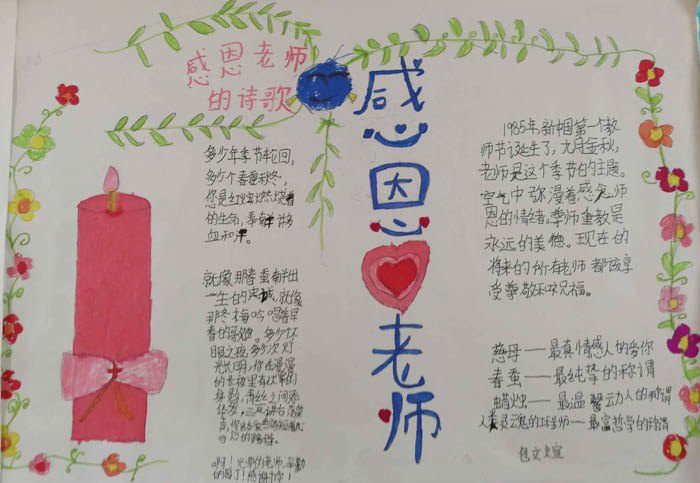 感恩老师
的诗歌
多少年季节轮回,
多少个春夏秋冬,
您是红烛燃烧着
的生命,奉献
血和
就像那春蚕献出
一生的忠诚,就像
那冬梅吟唱着早
春的歌
眼之夜,多少次灯
光长明,你在漫漫
的长夜里有
身影,青丝之间添
华发,三尺讲台
啊!光荣的老师,辛勤
的园丁!感谢
感恩
老师
1985年,新中国第一个教
师节诞生了,九月金秋,
老师是这个季节的主题。
空气中弥漫着感念师
恩的情绪。季师重教是
永远的美德。现在的
将来的所有老师都该享
受尊敬和祝福。
慈母——最真情感人的爱你
春蚕——最纯挚的称谓
蜡烛——最温馨动人的称谓
人类灵魂的工程师——最富哲学的称谓
包文宜